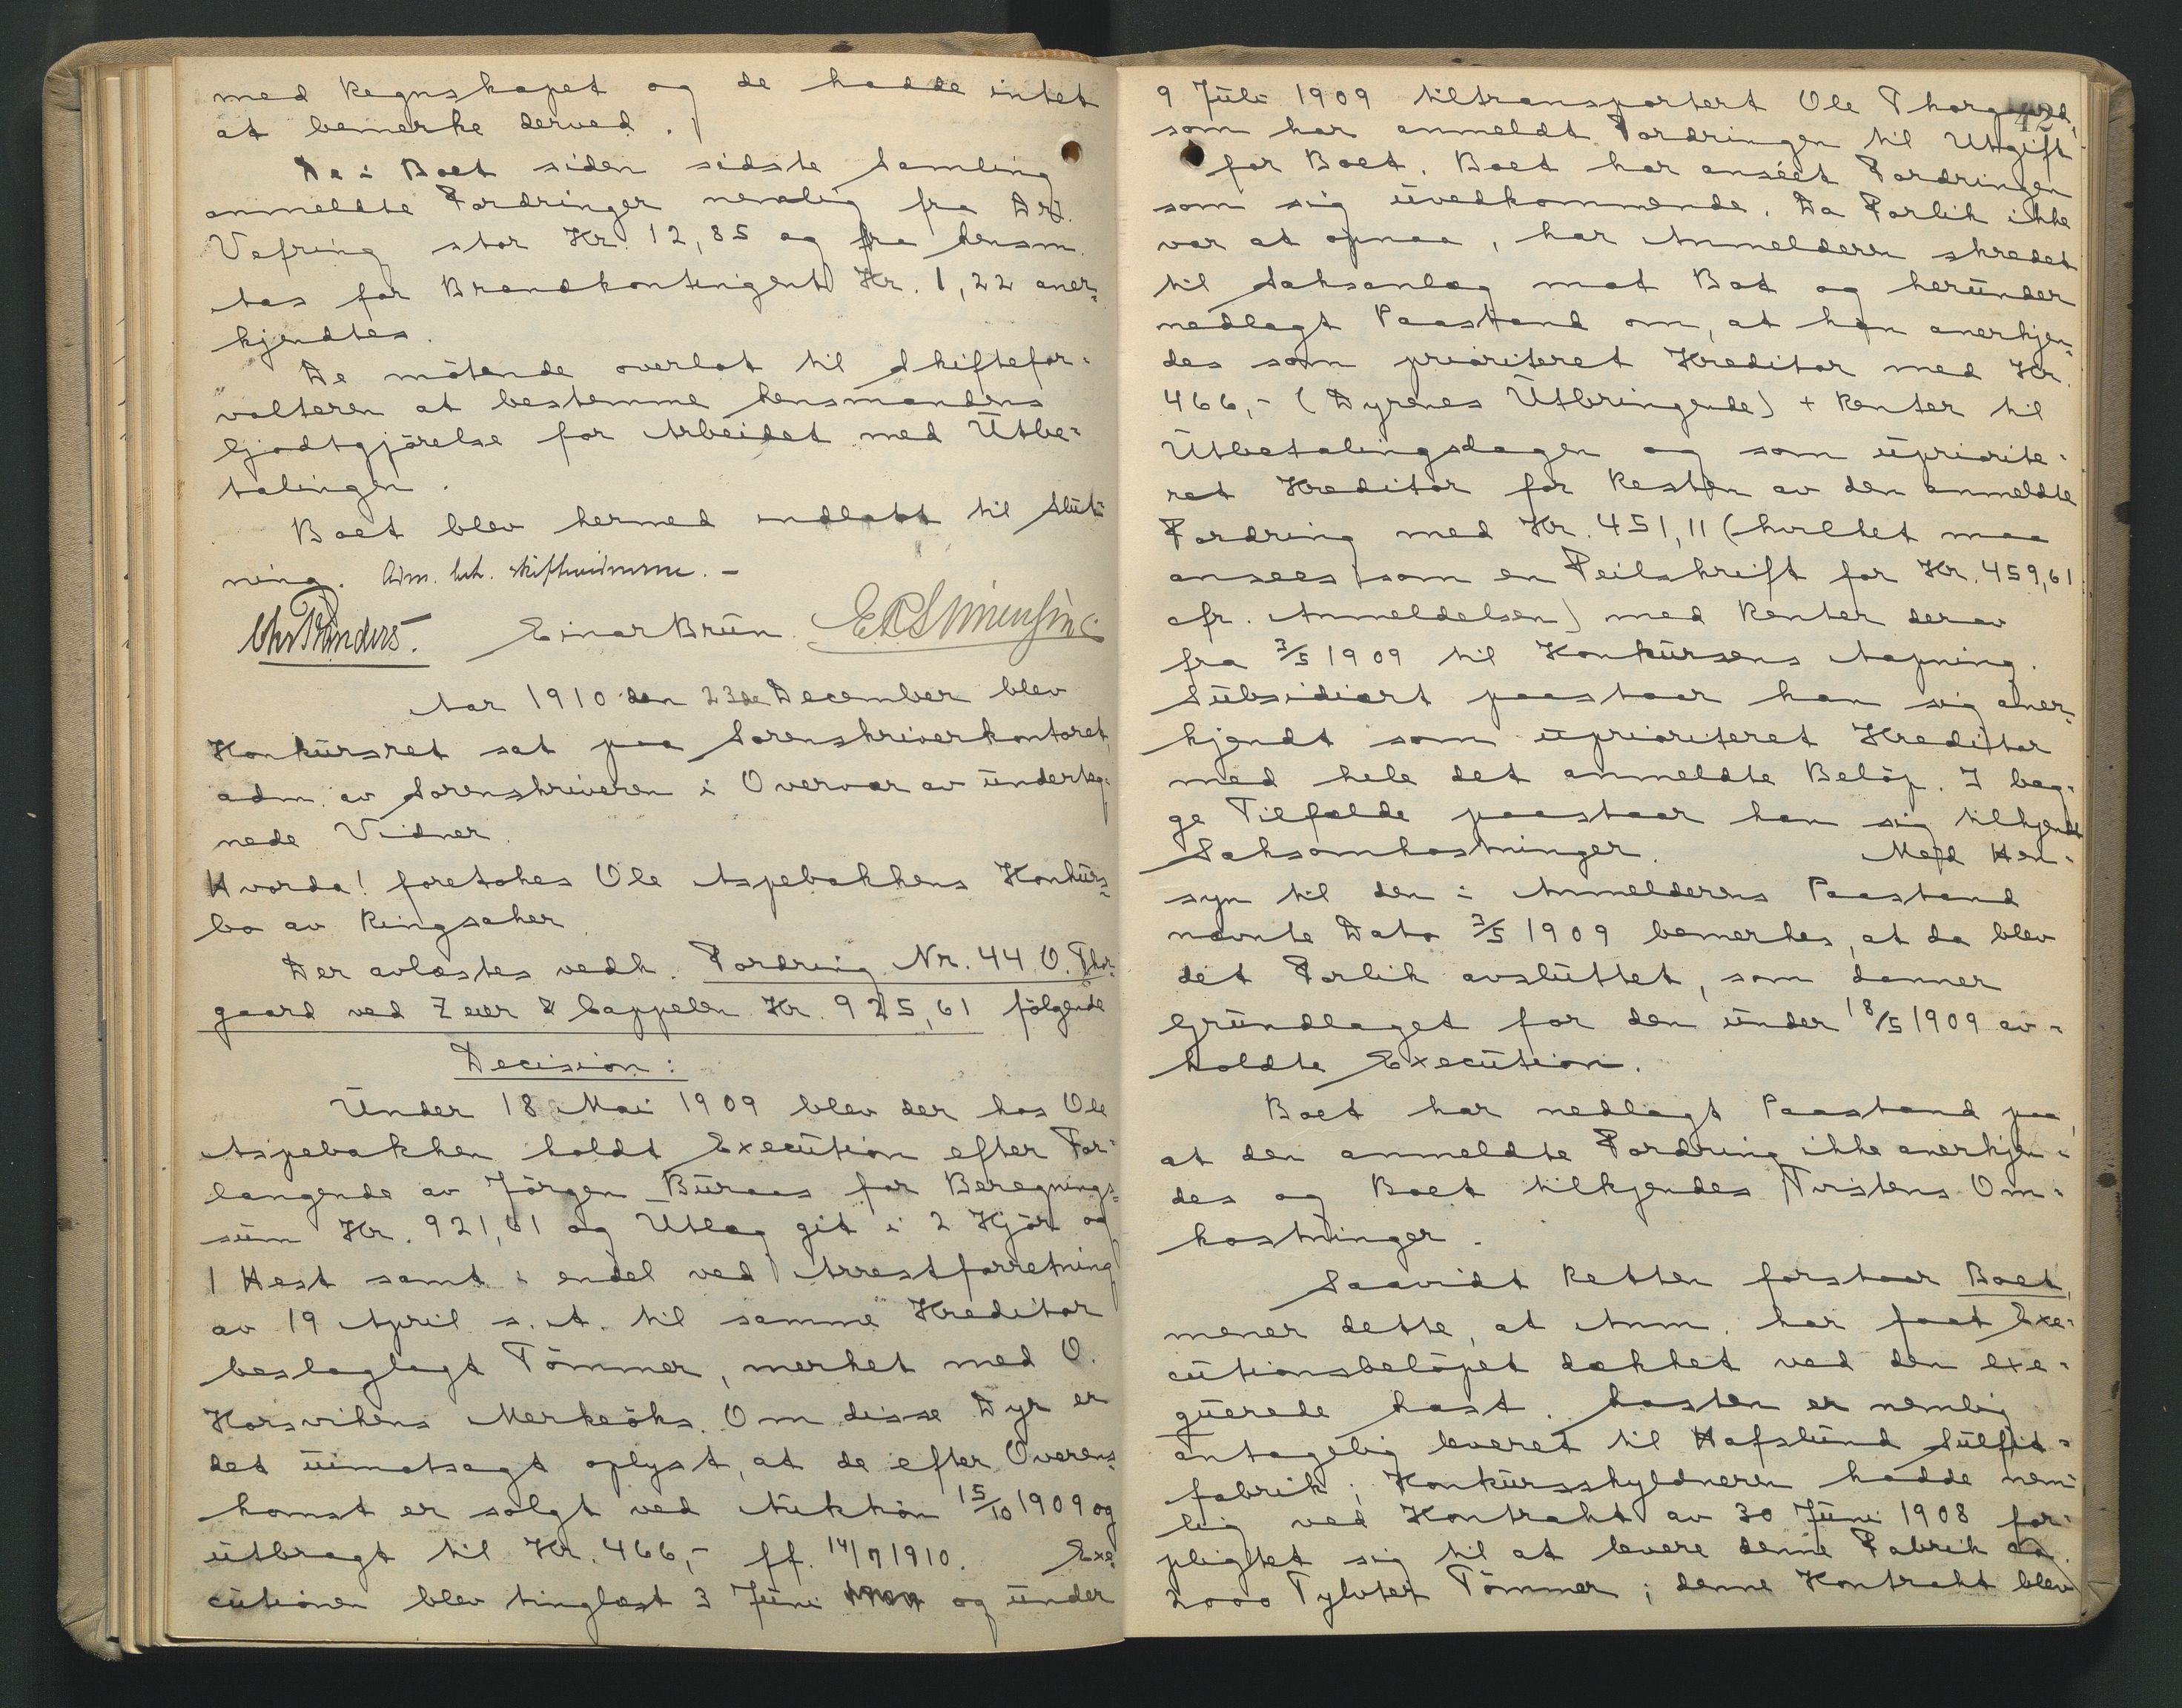 med Regnskapet og de hadde intet
at bemerke derved.
De i Boet siden sidste Samling
anmeldte Fordringer nemlig fra Dr.
Vefring stor Kr. 12,85 og fra Lensm.
tas for Brandkontingent Kr. 1,22 aner-
kjendtes.
De mötende overlot til Skiftefor-
valteren at bestemme Lensmandens
Godtgjörelse for Arbeidet med Utbe-
talingen.
Boet blev hermed indlatt til Slut-
ning. Adm. beh. skiftevidnerne. -
Chr Randers. Einar Brun
Aar 1910 den 23de December blev
Konkursret sat paa Sorenskriverkontoret,
adm. av Sorenskriveren i Overvær av underteg-
nede Vidner.
Hvorda! foretokes Ole Aspebakkens Konkurs-
bo av Ringsaker.
Der avlæstes vedk. Fordring Nr. 44 O. Thor-
gaard ved Zeier & Cappelen Kr. 925,61 fölgende
Decision:
Under 18 Mai 1909 blev der hos Ole
Aspebakken holdt Execution efter For-
langende av Jörgen Buraas for Beregnings-
sum Kr. 921,61 og Utlæg git i 2 Kjör og
1 Hest samt i endel ved Arrestforretning
av 19 April s. A. til samme Kreditor
beslaglagt Tömmer, merket med O.
Korsvikens Merkeöks. Om disse Dyr er
det uimotsagt oplyst, at de efter Overens-
komst er solgt ved Auktion 15/10 1909 og
utbragt til Kr. 466,- ff. 14/7 1910. Exe-
cutionen blev tinglæst 3 Juni og under
42
9 Juli 1909 tiltransportert Ole Thorgaard,
som har anmeldt Fordringen til Utgift
for Boet. Boet har anséet Fordringen
som sig uvedkommende. Da Forlik ikke
var at opnaa, har Anmelderen skredet
til Saksanlæg mot Bot og herunder
nedlagt Paastand om, at han anerkjen-
des som prioriteret Kreditor med Kr.
466,- (Dyrenes Utbringende) + Renter til
Utbetalingsdagen og som upriorite-
ret Kreditor for Resten av den anmeldte
Fordring med Kr. 451,11 (hvilket maa
ansees som en Feilskrift for Kr. 459,61
cfr. Anmeldelsen) med Renter derav
fra 3/5 1909 til Konkursens Aapning.
Subsidiært paastaar han sig aner-
kjendt som uprioriteret Kreditor
med hele det anmeldte Belöp. I beg-
ge Tilfælde paastaar han sig tilkjendt
Saksomkostninger. Med Hen-
syn til den i Anmelderens Paastand
nævnte Dato 3/5 1909 bemerkes, at da blev
det Forlik avsluttet, som danner
Grundlaget for den under 18/5 1909 av-
holdte Execution.
Boet har nedlagt Paastand paa,
at den anmeldte Fordring ikke anerkjen-
des og Boet tilkjendes Tvistens Om-
kostninger.
Saavidt Retten forstaar Boet,
mener dette, at Anm. har faat Exe-
cutionsbelöpet dækket ved den exe-
querede Last. Lasten er nemlig
antagelig leveret til Hafslund Sulfit-
fabrik; Konkursskyldneren hadde nem-
lig ved Kontrakt av 30 Juni 1908 for-
pligtet sig til at levere denne Fabrik ca.
2000 Tylvter Tömmer; denne Kontrakt blev